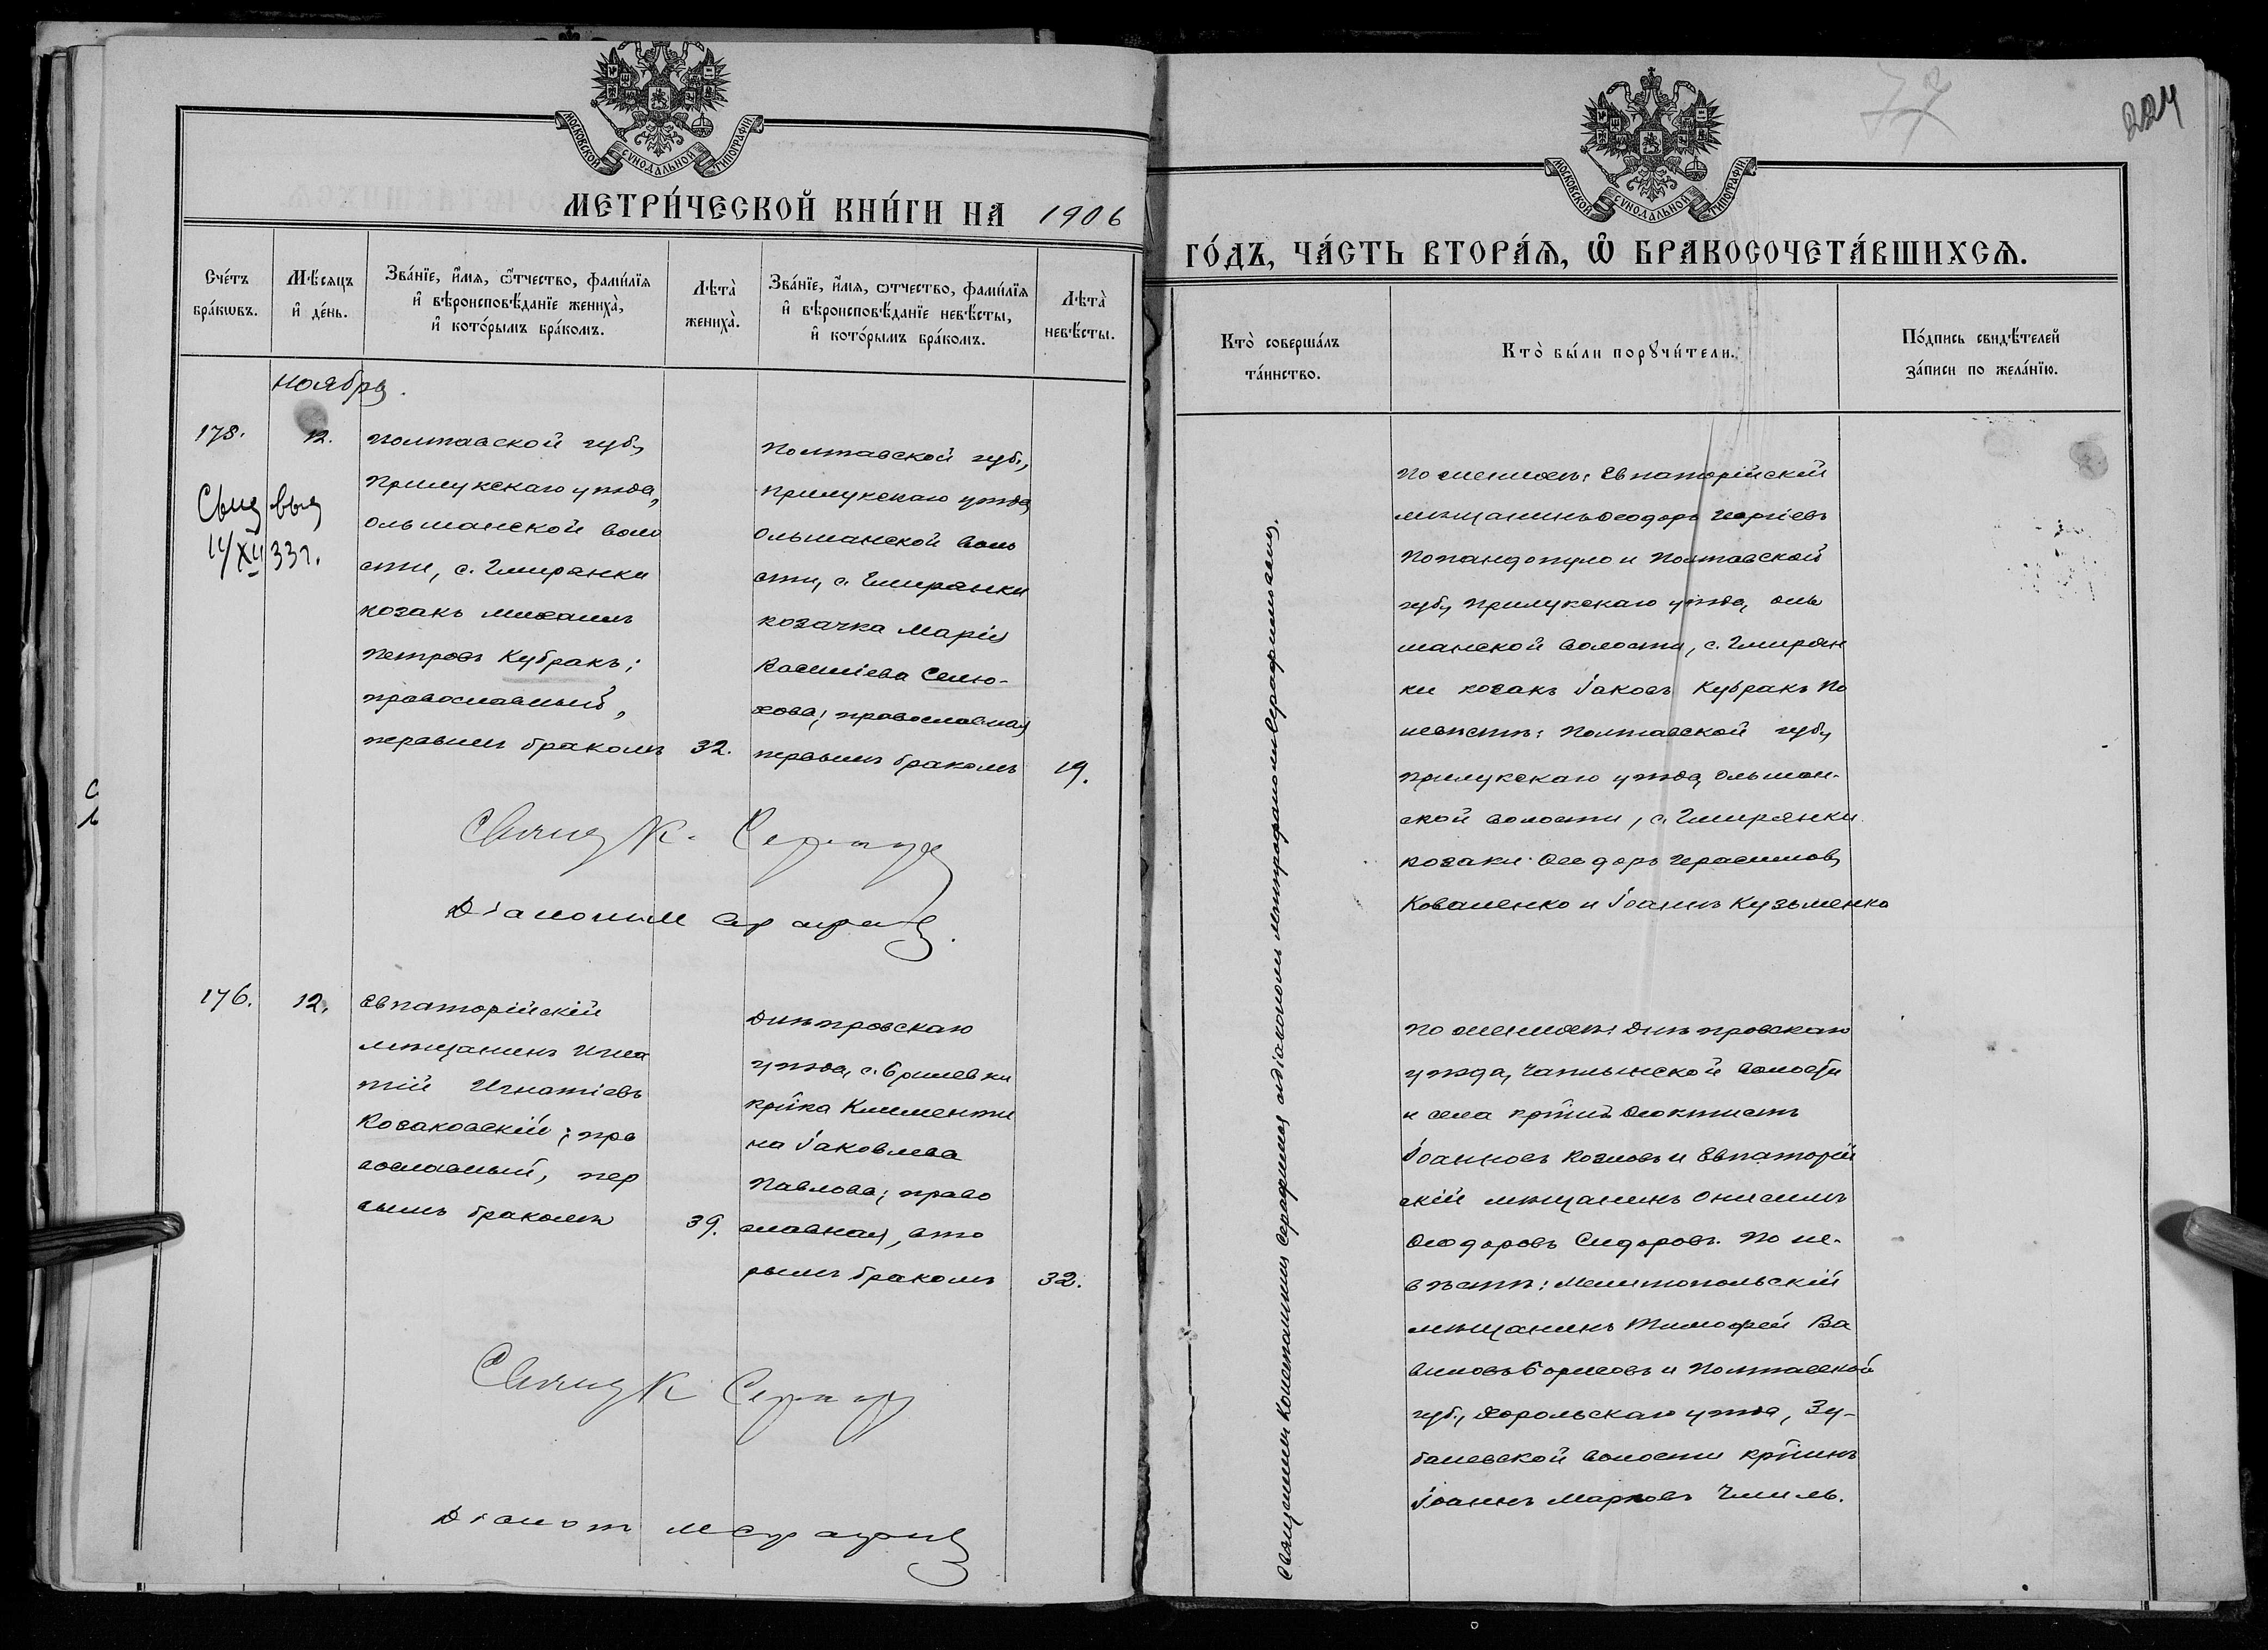 МОСКОВСКОЙ СУНОДАЛЬНОЙ ТИПОГРАФИИ
МЕТРИ́ЧЕСКОЙ КНИ́ГИ НА 1906
Сче́тъ бра́кѡвъ.
Мѣ́сяцъ и҆ де́нь.
Зва́нїе, и҆́мя, ѻ҆́тчество, фами́лїя и҆ вѣроисповѣ́данїе жениха̀, и҆ кото́рымъ бра́комъ.
Лѣта̀ жениха̀.
Зва́нїе, и҆́мя, ѻтчество, фами́лїя и҆ вѣроисповѣ́данїе невѣ́сты, и҆ кото́рымъ бра́комъ.
Лѣта̀ невѣ́сты.
ноября.
175.
12.
Свид выд
14/XII 33 г.
Полтавской губ.,
Прилукскаго уѣзда,
Ольшанской воло
сти, с. Гмирянки
козакъ Михаилъ
Петровъ Кубракъ;
православный,
первымъ бракомъ
32.
Полтавской губ.,
Прилукскаго уѣзда,
Ольшанской воло
сти, с. Гмирянки
козачка Марія
Василіева Селю-
хова; православная
первымъ бракомъ
19.
Свящ К.
Діаконъ М
176.
12.
Евпаторійскій
мѣщанинъ Игна
тій Игнатіевъ
Козаковскій; пра
вославный, пер
вымъ бракомъ
39.
Днѣпровскаго
уѣзда, с. Брилевки
кр҃нка Клименти
на Іаковлева
Павлова; право
славная, вто
рымъ бракомъ
32.
Свящ К
Діаконъ М
77
224
МОСКОВСКОЙ СУНОДАЛЬНОЙ ТИПОГРАФИИ
ГО́ДЪ, ЧА́СТЬ ВТОРА́Ѧ, Ѽ БРАКОСОЧЕТА́ВШИХСѦ.
Кто̀ соверша́лъ та́инство.
Кто̀ бы́ли порꙋчи́тели.
По́дпись свидѣ́телей за́писи по жела́нїю.
Священникъ Константинъ Серафимовъ съ діакономъ Митрофаномъ Серафимовымъ.
По женихѣ: Евпаторійскій
мѣщанинъ Ѳеодоръ Георгіевъ
Попандопуло и Полтавской
губ., Прилукскаго уѣзда, Оль
шанской волости, с. Гмирян
ки козакъ Іаковъ Кубракъ По
невѣстѣ: Полтавской губ.,
Прилукскаго уѣзда, Ольшан-
ской волости, с. Гмирянки
козаки: Ѳеодоръ Герасимовъ
Коваленко и Іоаннъ Кузьменко
По женихѣ: Днѣпровскаго
уѣзда, Чаплынской волости
и села кр҃нинъ Ѳеоктистъ
Іоанновъ Козловъ и Евпаторій
скій мѣщанинъ Онисимъ
Ѳеодоровъ Сидоровъ. По не-
вѣстѣ: Мелитопольскій
мѣщанинъ Тимофей Ва
виловъ Борисовъ и Полтавской
губ., Хорольскаго уѣзда, Зу-
баневской волости кр҃нинъ
Іоаннъ Марковъ Чмиль.